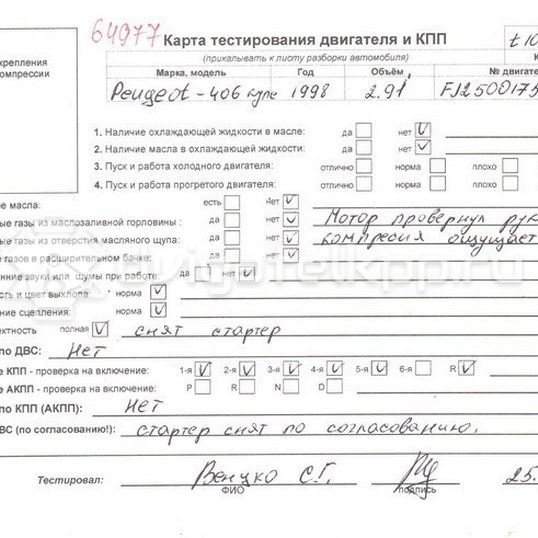 64977 Карта тестирования двигателя и КПП
крепления
омпрессии
(прикалывать к листу разборки автомобиля)
Марка, модель Год Объём № двигате
Peugeot - 406 купе 1998 2.9i
1. Наличие охлаждающей жидкости в масле: да нет V
2. Наличие масла в охлаждающей жидкости: да нет V
3. Пуск и работа холодного двигателя: отлично норма плохо
4. Пуск и работа прогретого двигателя: отлично норма плохо
ие масла: есть нет V
ые газы из маслозаливной горловины : да нет V Мотор провернул рук
ые газы из отверстия масляного щупа: да нет V компресия ощущает
е газов в расширительном бачке: да нет V
нние звуки или шумы при работе: да нет V
сть и цвет выхлопа: норма V
ние сцепления: норма V
ектность полная V снят стартер
по ДВС: Нет
е КПП - проверка на включение: 1-я V 2-я V 3-я V 4-я V 5-я V 6-я R V
е АКПП - проверка на включение: P R N D
по КПП (АКПП): Нет
ВС (по согласованию!): стартер снят по согласованию.
Тестировал: С.Г. 25.
ФИО подпись
vigatelkpp.ru